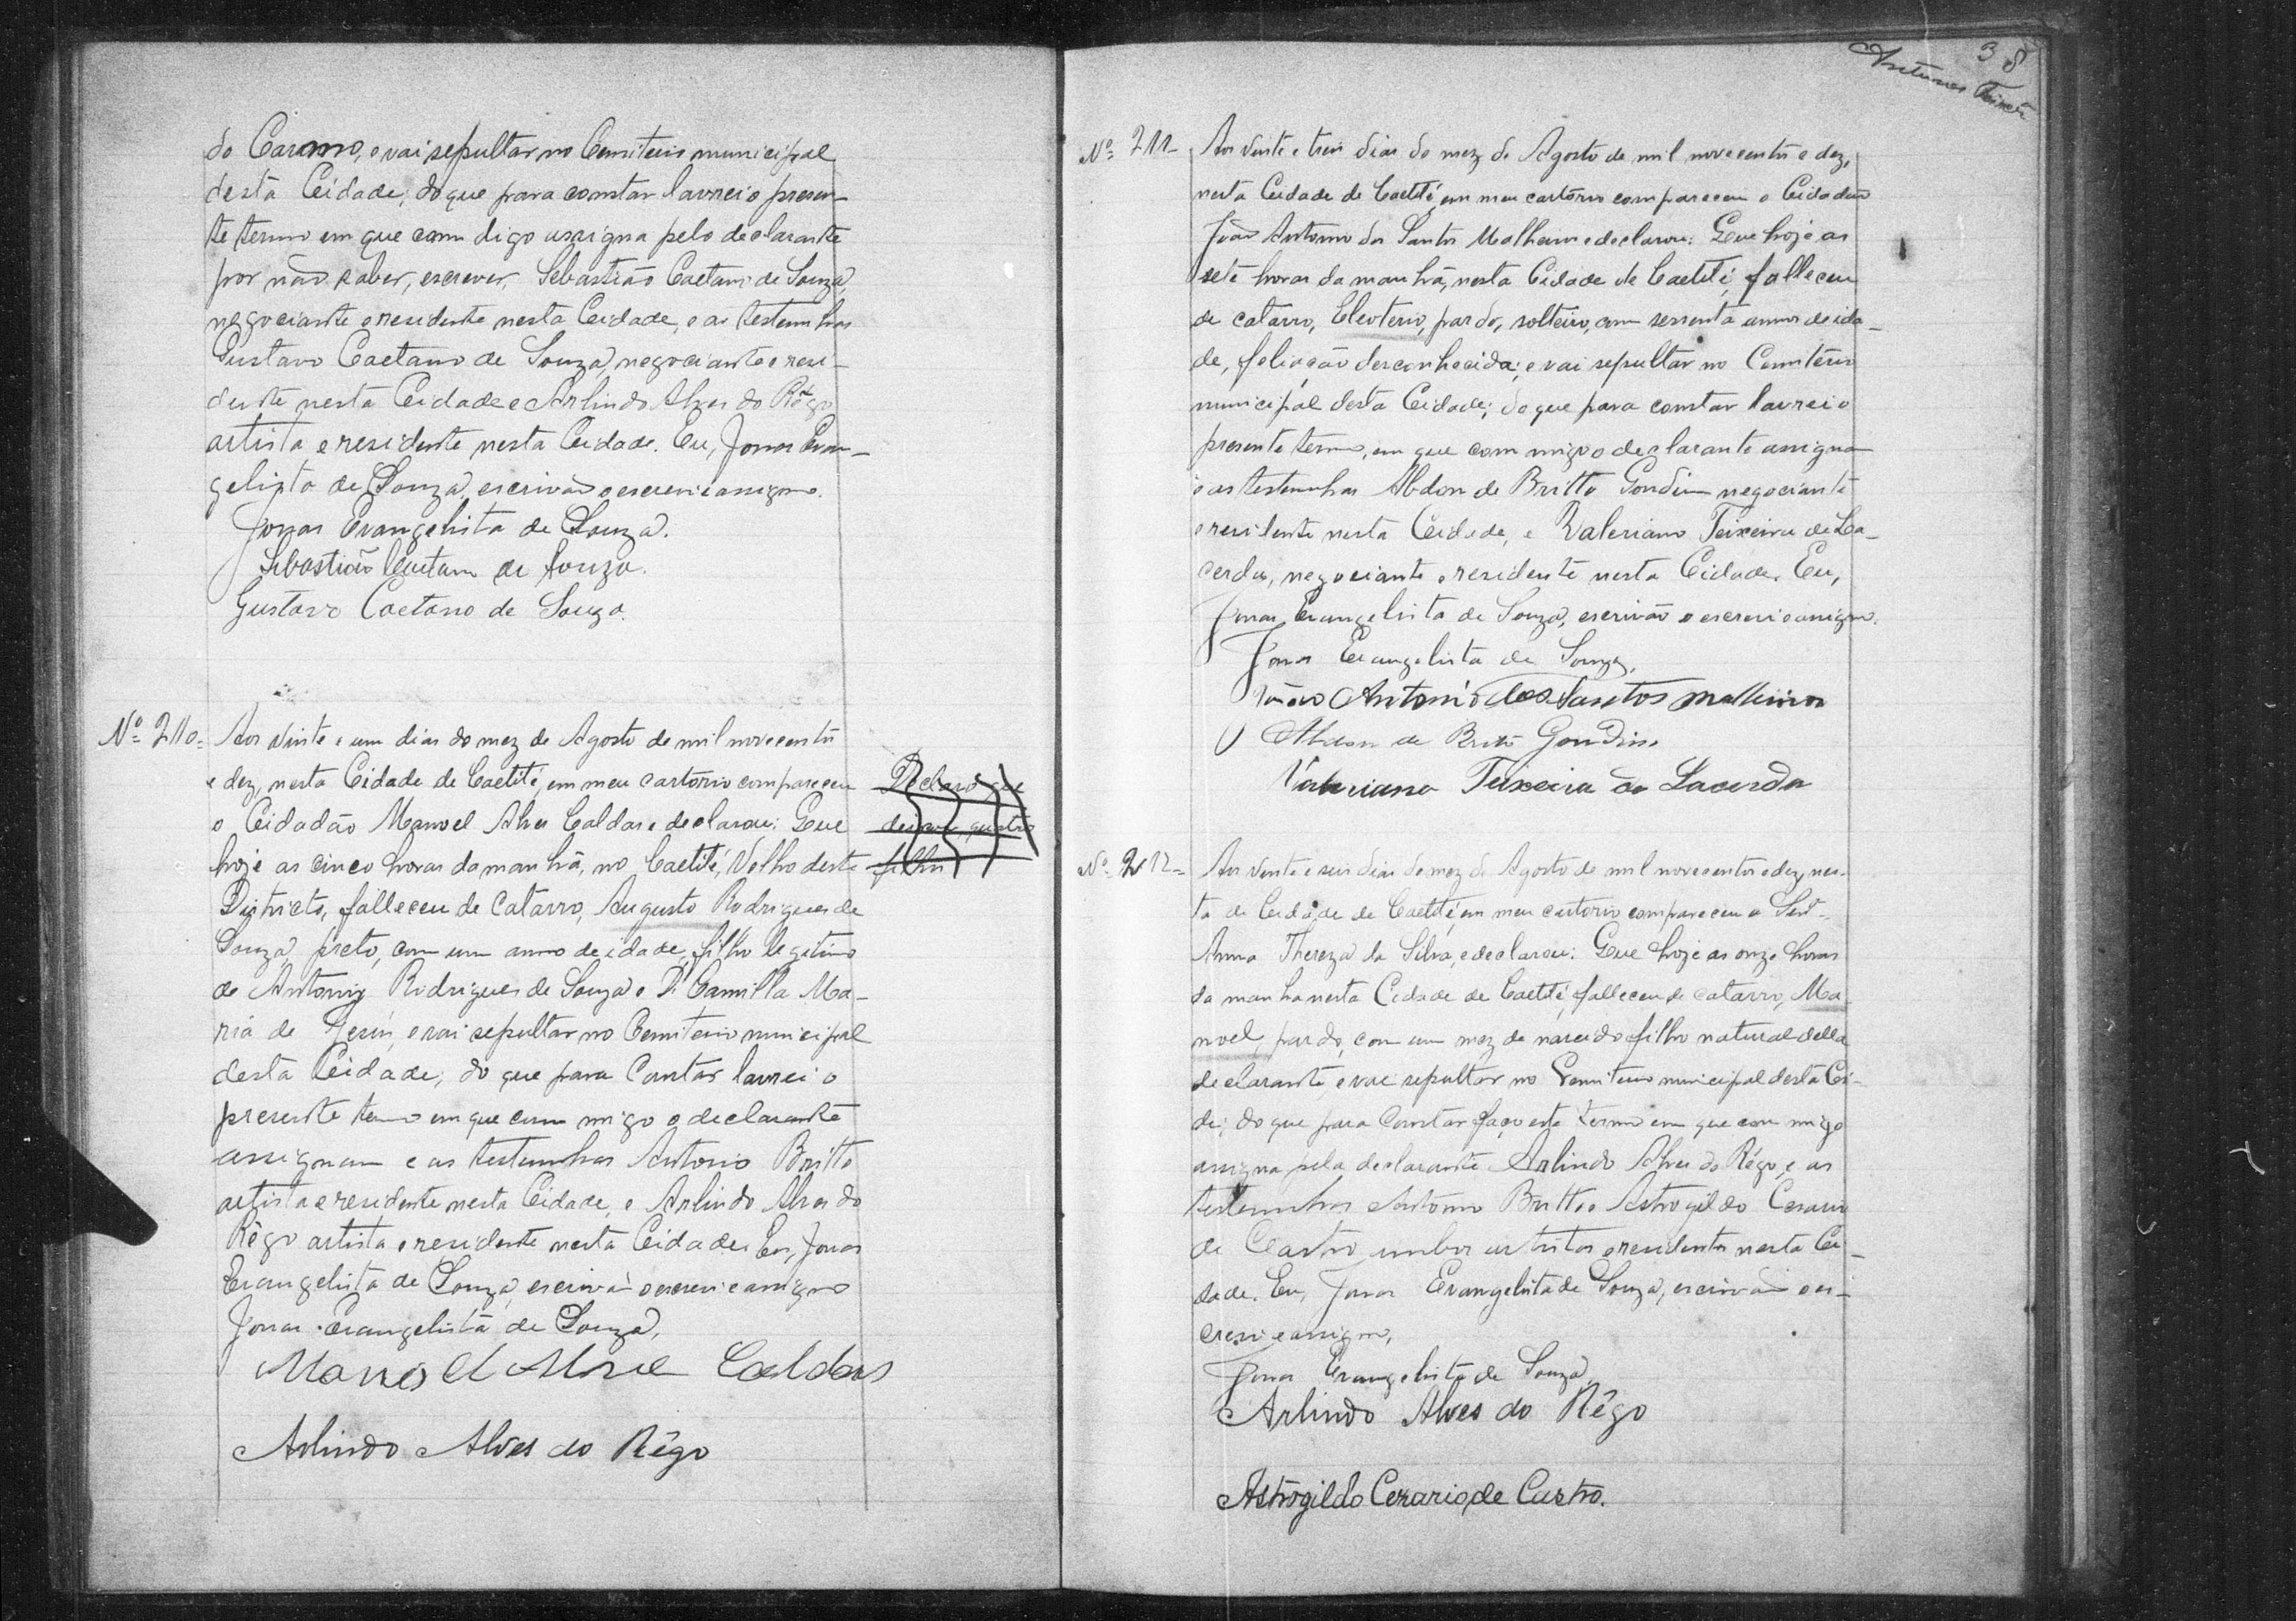 do Carmo, e vai sepultar no Cemiterio municipal
desta Cidade; do que para constar lavrei o presen-
te termo em que com digo assigna pelo declarante
por não saber, escrever, Sebastião Caetano de Souza,
negociante e residente nesta Cidade, e as testemunhas
Gustavo Caetano de Souza, negociante e resi-
dente nesta Cidade e Arlindo Alves do Rêgo
artista e residente nesta Cidade. Eu, Jonas Evan-
gelista de Souza, escrivão o escrevi e assigno.
Jonas Evangelista de Souza.
Sebastião Caetano de Souza.
Gustavo Caetano de Souza.
Nº 210= Aos vinte e um dias do mez de Agosto de mil novecentos
e dez, nesta Cidade de Caetité, em meu cartório compareceu
o Cidadão Manoel Alves Caldas e declarou: Que
hoje as cinco horas da manhã, no Caetité, Velho deste
Districto, falleceu de catarro, Augusto Rodrigues de
Souza, preto, com um anno de idade, filho legitimo
de Antonio Rodrigues de Souza e D. Camilla Ma-
ria de Jesus, e vai sepultar no Cemiterio municipal
desta Cidade; do que para constar lavrei o
presente termo em que commigo o declarante
assignam e as testemunhas Antonio Britto
artista e residente nesta Cidade, e Arlindo Alves do
Rêgo artista e residente nesta Cidade. Eu, Jonas
Evangelista de Souza, escrivão o escrevi e assigno
Jonas Evangelista de Souza,
Manoel Alves Caldas
Arlindo Alves do Rêgo
Declaro que
deixou quatro
filhos
38
Antunes
Nº 211- Aos vinte e tres dias do mez de Agosto de mil novecentos e dez,
nesta Cidade de Caetité, em meu cartório compareceu o Cidadão
João Antonio dos Santos Malheiros e declarou: Que hoje as
sete horas da manhã, nesta Cidade de Caetité, falleceu
de catarro, Eleoterio, pardo, solteiro, com sessenta annos de ida-
de, feliação desconhecida; e vai sepultar no Cemitério
municipal desta Cidade; do que para constar lavrei o
presente termo, em que commigo o declarante assigna
e as testemunhas Abdon de Britto Gondim negociante
e residente nesta Cidade, e Valeriano Teixeira de La-
cerda, negociante e residente nesta Cidade. Eu,
Jonas Evangelista de Souza, escrivão o escrevi e assigno.
Jonas Evangelista de Souza,
João Antonio dos Santos Malheiros
Abdon de Britto Gondim
Valeriano Teixeira de Lacerda
Nº 212= Aos vinte e seis dias do mez de Agosto de mil novecentos e dez, nes-
ta de Cidade de Caetité, em meu cartorio compareceu a
Anna Thereza da Silva, e declarou: Que hoje as onze horas
da manhã nesta Cidade de Caetité, falleceu de catarro, Ma-
noel, pardo, com um mez de nascido filho natural della
declarante, e vai sepultar no Cemiterio municipal desta Ci-
de; do que para constar faço este termo em que commigo
assigna pela declarante Arlindo Alves do Rêgo, e as
testemunhas Antonio Britto e Astrogildo Cesario
de Castro ambos artistas e residentes nesta Ci-
dade. Eu, Jonas Evangelista de Souza, escrivão o es-
crevi e assigno,
Jonas Evangelista de Souza,
Arlindo Alves do Rêgo
Astrogildo Cezario de Castro.